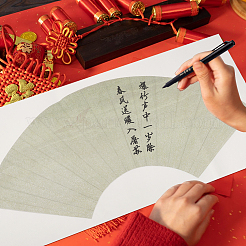 爆竹声中一岁除
春风送暖入屠苏